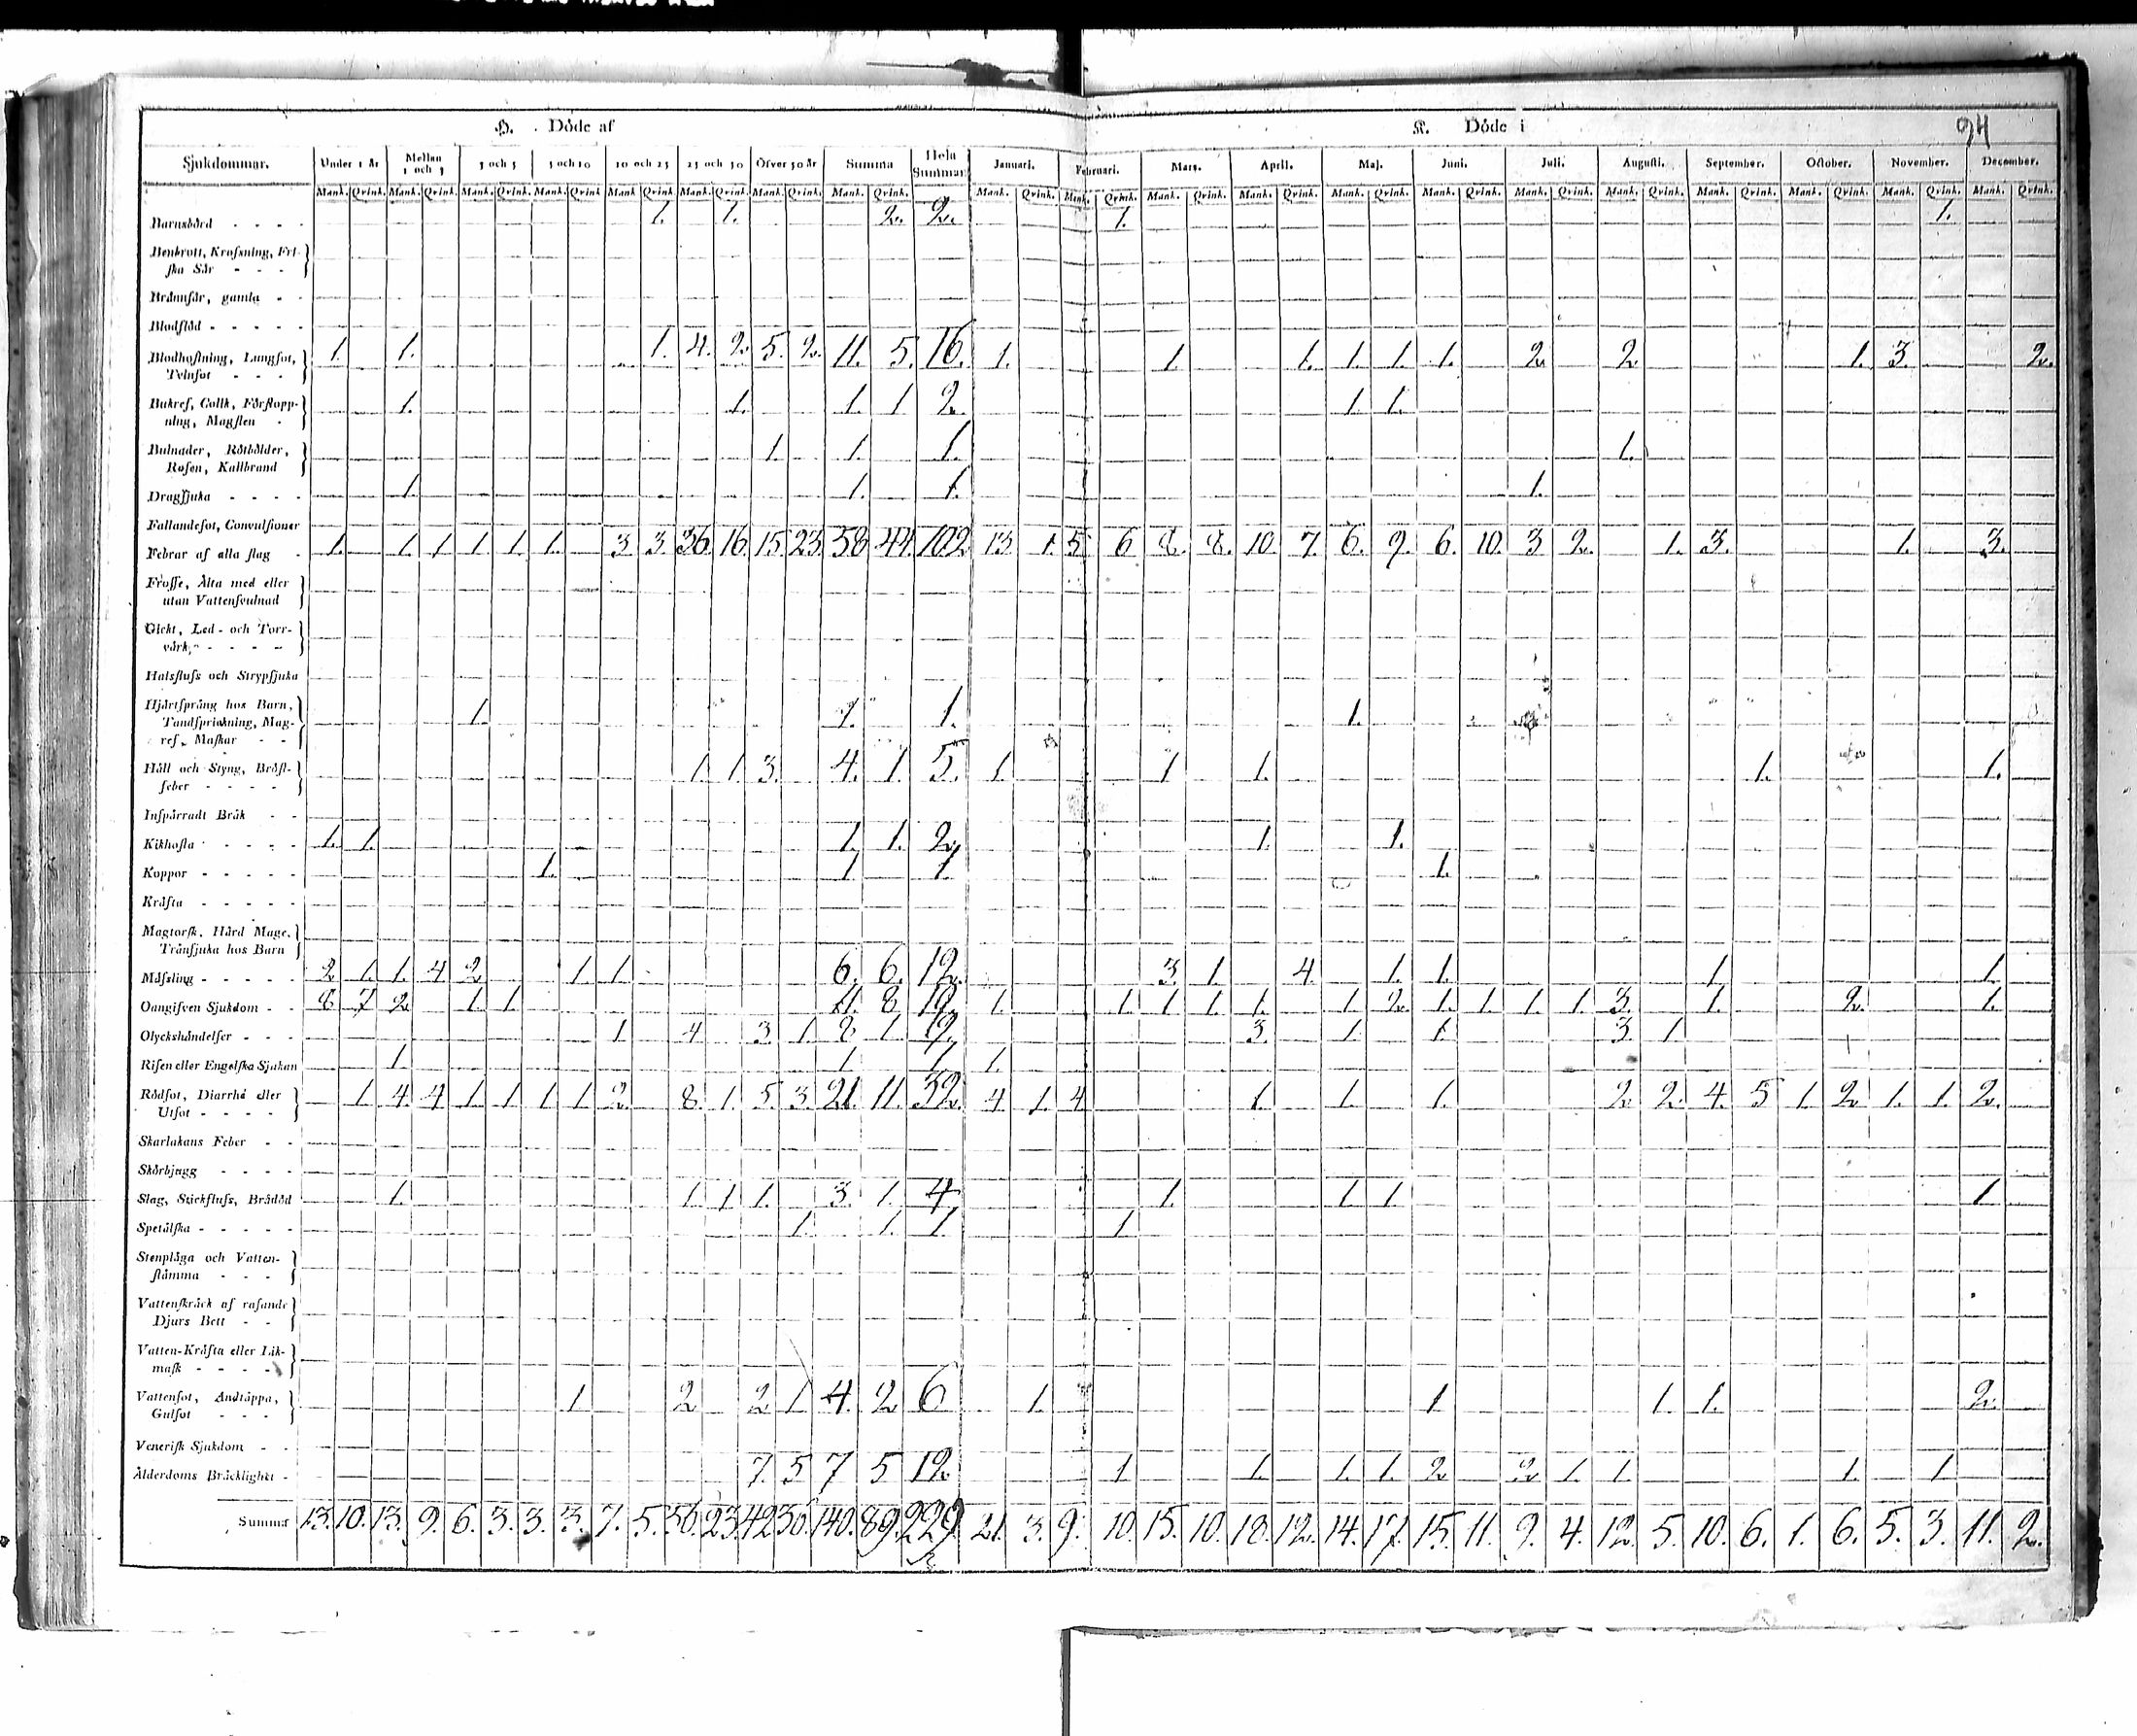 94
H. Döde af K. Döde i
Sjukdommar. Under 1 år Mellan 1 och 3 3 och 5 5 och 10 10 och 25 25 och 50 Öfver 50 år Summa Hela Summan Januari. Februari. Mars. April. Maj. Juni. Juli. Augusti. September. October. November. December.
Mank. Qvink. Mank. Qvink. Mank. Qvink. Mank. Qvink. Mank. Qvink. Mank. Qvink. Mank. Qvink. Mank. Qvink. Mank. Qvink. Mank. Qvink. Mank. Qvink. Mank. Qvink. Mank. Qvink. Mank. Qvink. Mank. Qvink. Mank. Qvink. Mank. Qvink. Mank. Qvink. Mank. Qvink. Mank. Qvink.
Barnsbörd - - - - 1. 1. 2. 2. 1. 1.
Benbrott, Krofsning, Fri-
ska Sår - - -
Brännsår, gamla - -
Blodstöd - - - - -
Blodhostning, Lungsot, 1. 1. 1. 4. 2. 5. 2. 11. 5. 16. 1. 1. 1. 1. 1. 1. 2. 2. 1. 3. 2.
Tvinsot - - -
Bukref, Collk, Förstopp- 1. 1. 1. 1 2. 1. 1.
ning, Magsten -
Bulnader, Rötbölder, 1. 1. 1. 1.
Rosen, Kallbrand
Dragsjuka - - - - 1. 1. 1. 1.
Fallandesot, Convulsioner
Febrar af alla slag - 1. 1. 1 1 1. 1. 3 3. 36. 16. 15. 23. 58 44. 102 13. 1. 5 6 8. 8. 10. 7. 6. 9. 6. 10. 3. 2. 1. 3. 1. 3.
Frosse, Älta med eller
utan Vattensvulnad
Gickt, Led- och Torr-
värk, - - - -
Halsfluss och Strypsjuka
Hjärtsprång hos Barn, 1. 1. 1. 1.
Tandsprickning, Mag-
ref, Maskar - -
Håll och Styng, Bröst- 1. 1. 3. 4. 1. 5. 1. 1. 1. 1. 1.
feber - - - -
Inspärradt Bråk - -
Kikhosta - - - - 1. 1. 1. 1. 2. 1. 1.
Koppor - - - - - 1. 1 1 1.
Kräfta - - - - -
Magtorsk, Hård Mage,
Tränsjuka hos Barn
Mässling - - - - - 2 1. 1. 4 2 1. 1. 6. 6. 12. 3. 1. 4. 1. 1. 1. 1.
Oangifven Sjukdom - - 8 7 2 1. 1. 11. 8 19. 1. 1. 1. 1. 1. 1. 2. 1. 1. 1. 1. 3. 1. 2. 1.
Olyckshändelser - - - 1. 4 3 1. 8 1. 9. 3. 1. 1. 3. 1.
Risen eller Engelska Sjukan 1. 1. 1. 1.
Rödsot, Diarrhé eller 1. 4. 4 1. 1. 1. 1. 2. 8. 1. 5. 3. 21. 11. 32. 4 1. 4 1. 1. 1. 2. 2. 4. 5 1. 2. 1. 1. 2.
Utsot - - - -
Skarlakans Feber - -
Skörbjugg - - - -
Slag, Stickfluss, Brådöd 1. 1. 1. 1. 3. 1. 4. 1. 1. 1. 1
Spetälska - - - - - 1. 1. 1. 1
Stenplåga och Vatten-
stämma - - -
Vattenskräck af rasande
Djurs Bett - -
Vatten-Kräfta eller Lik-
mask - - - -
Vattensot, Andtäppa, 1 2 2 1. 4. 2 6 1. 1 1. 1. 2.
Gulsot - - -
Venerisk Sjukdom - -
Ålderdoms Bräcklighet - 7. 5 7 5 12. 1. 1. 1. 1. 2. 2. 1. 1. 1. 1.
Summa 13. 10. 13. 9. 6. 3. 3. 3. 7. 5. 56. 23. 42 36. 140. 89. 229. 21. 3. 9. 10. 15. 10. 18. 12. 14. 17. 15. 11. 9. 4. 12. 5. 10. 6. 1. 6. 5. 3. 11. 2.